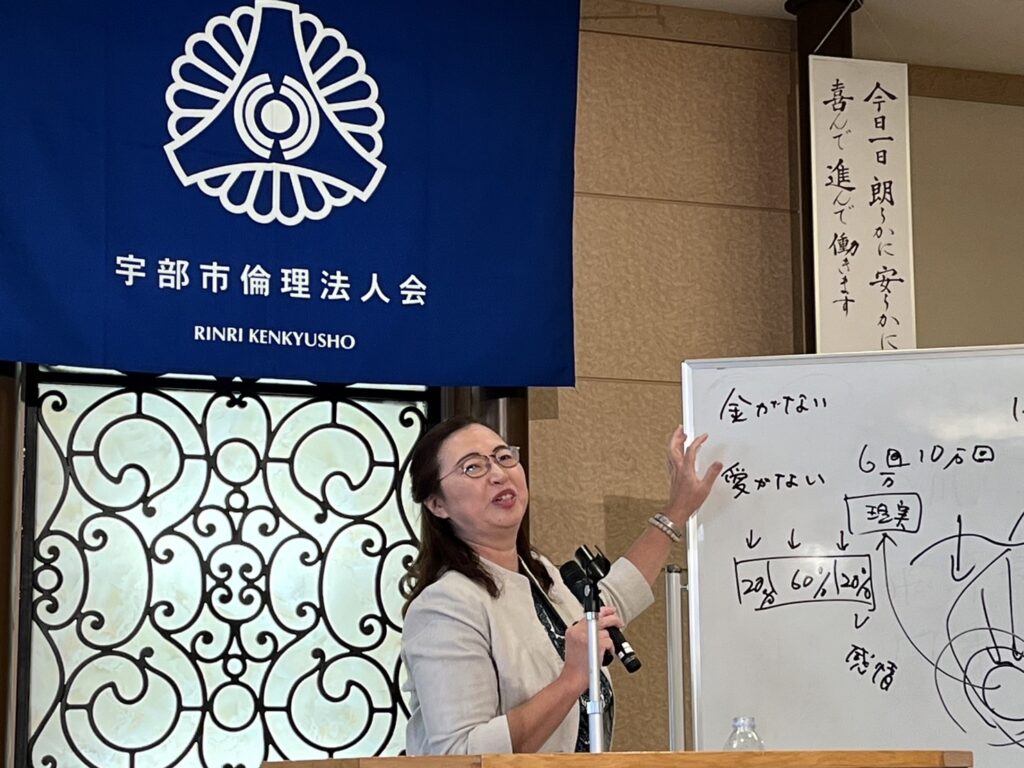 宇部市倫理法人会
RINRI KENKYUSHO
今日一日 朗らかに 安らかに
喜んで 進んで 働きます
金がない
愛がない
6万回 10万回
現実
20% 60% 20%
感情